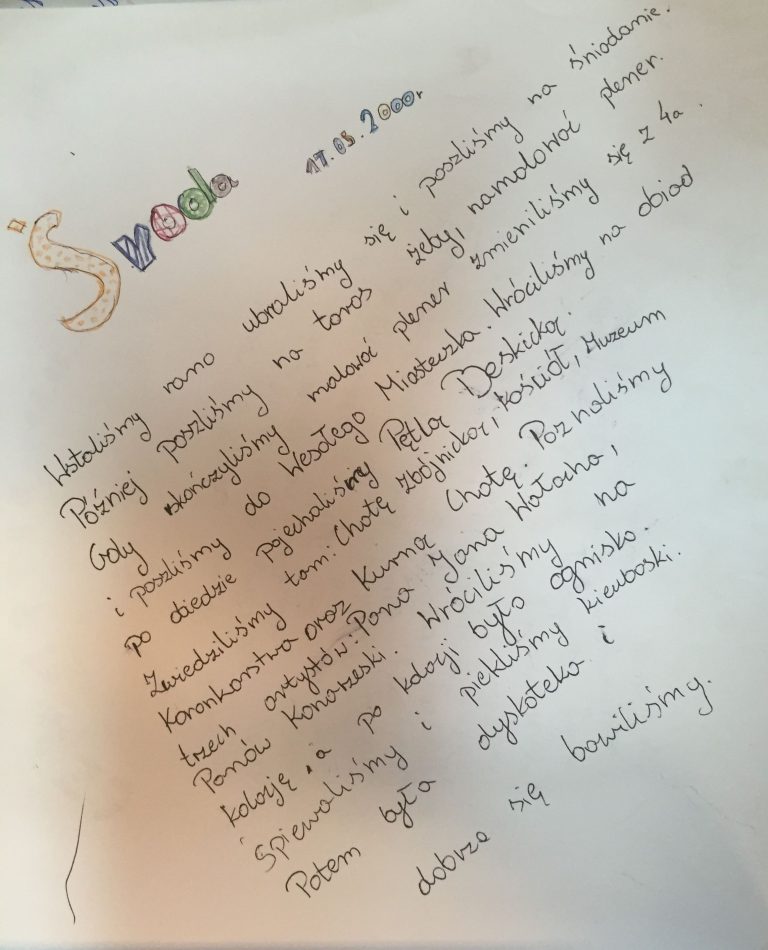 Środa 17.05.2000r
Wstaliśmy rano ubraliśmy się i poszliśmy na śniadanie.
Później poszliśmy na taras żeby, namalować plener.
Gdy skończyliśmy malować plener zmieniliśmy się z 4a.
i poszliśmy do Wesołego Miasteczka. Wróciliśmy na obiad
po obiedzie pojechaliśmy Pętlą Beskicką.
Zwiedziliśmy tam: Chatę zbójnicką, kościół, Muzeum
Koronkarstwa oraz Kurną Chatę. Poznaliśmy
trzech artystów: Pana Jana Wałacha,
Panów Konarzeski. Wróciliśmy na
kolację, a po kolacji było ognisko.
Śpiewaliśmy i piekliśmy kieubaski.
Potem była dyskoteka i
dobrze się bawiliśmy.